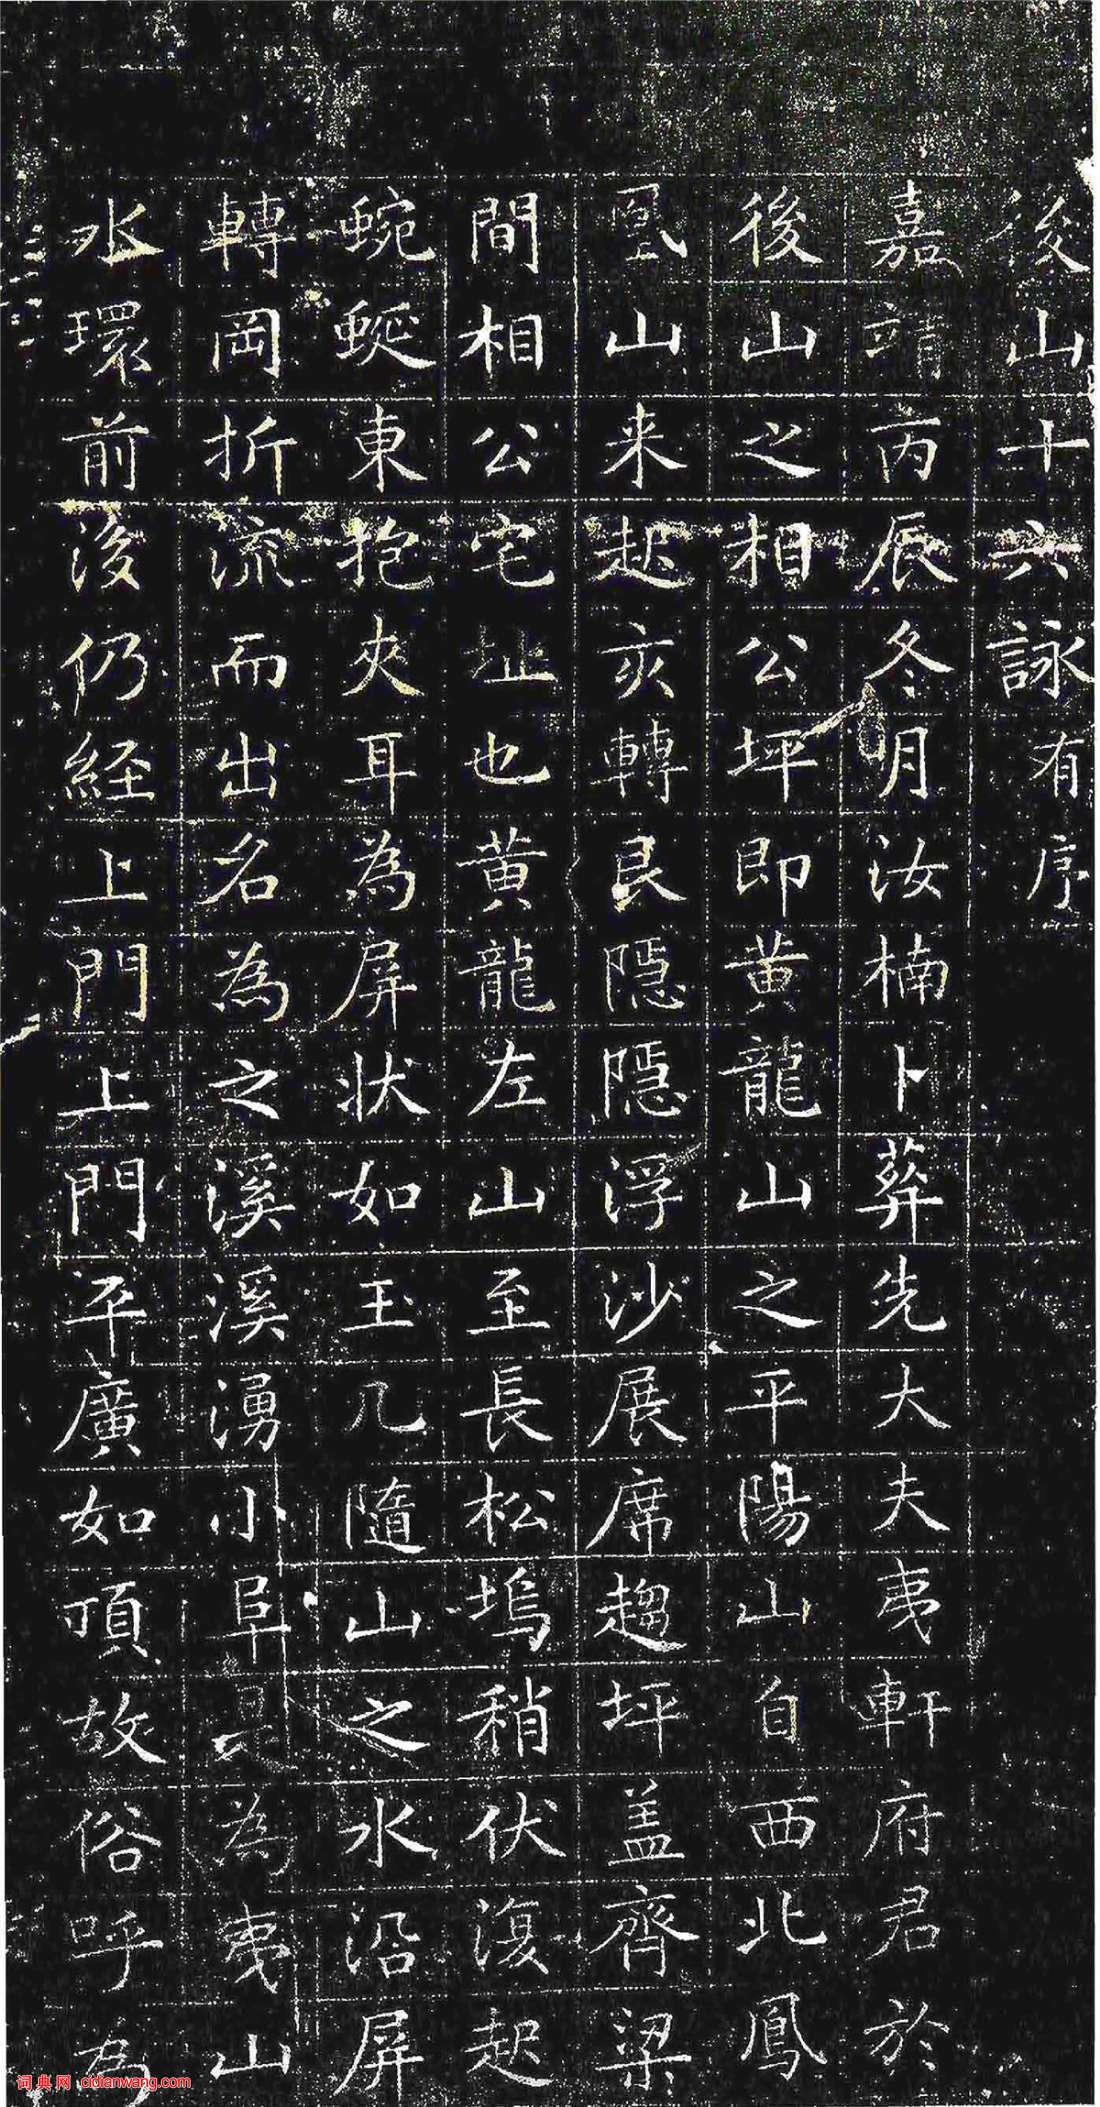 後山十六詠有序
嘉靖丙辰冬月汝楠卜葬先大夫夷軒府君於
後山之相公坪即黃龍山之平陽山自西北鳳
凰山来起亥轉艮隱隱浮沙展席趨坪盖齊梁
間相公宅址也黃龍左山至長松塢稍伏復起
蜿蜒東抱夾耳為屏狀如玉几隨山之水沿屏
轉岡折流而出名為之溪溪湧小阜是為夷山
水環前後仍經上門上門平廣如項故俗呼為
词典网 cidianwang.com